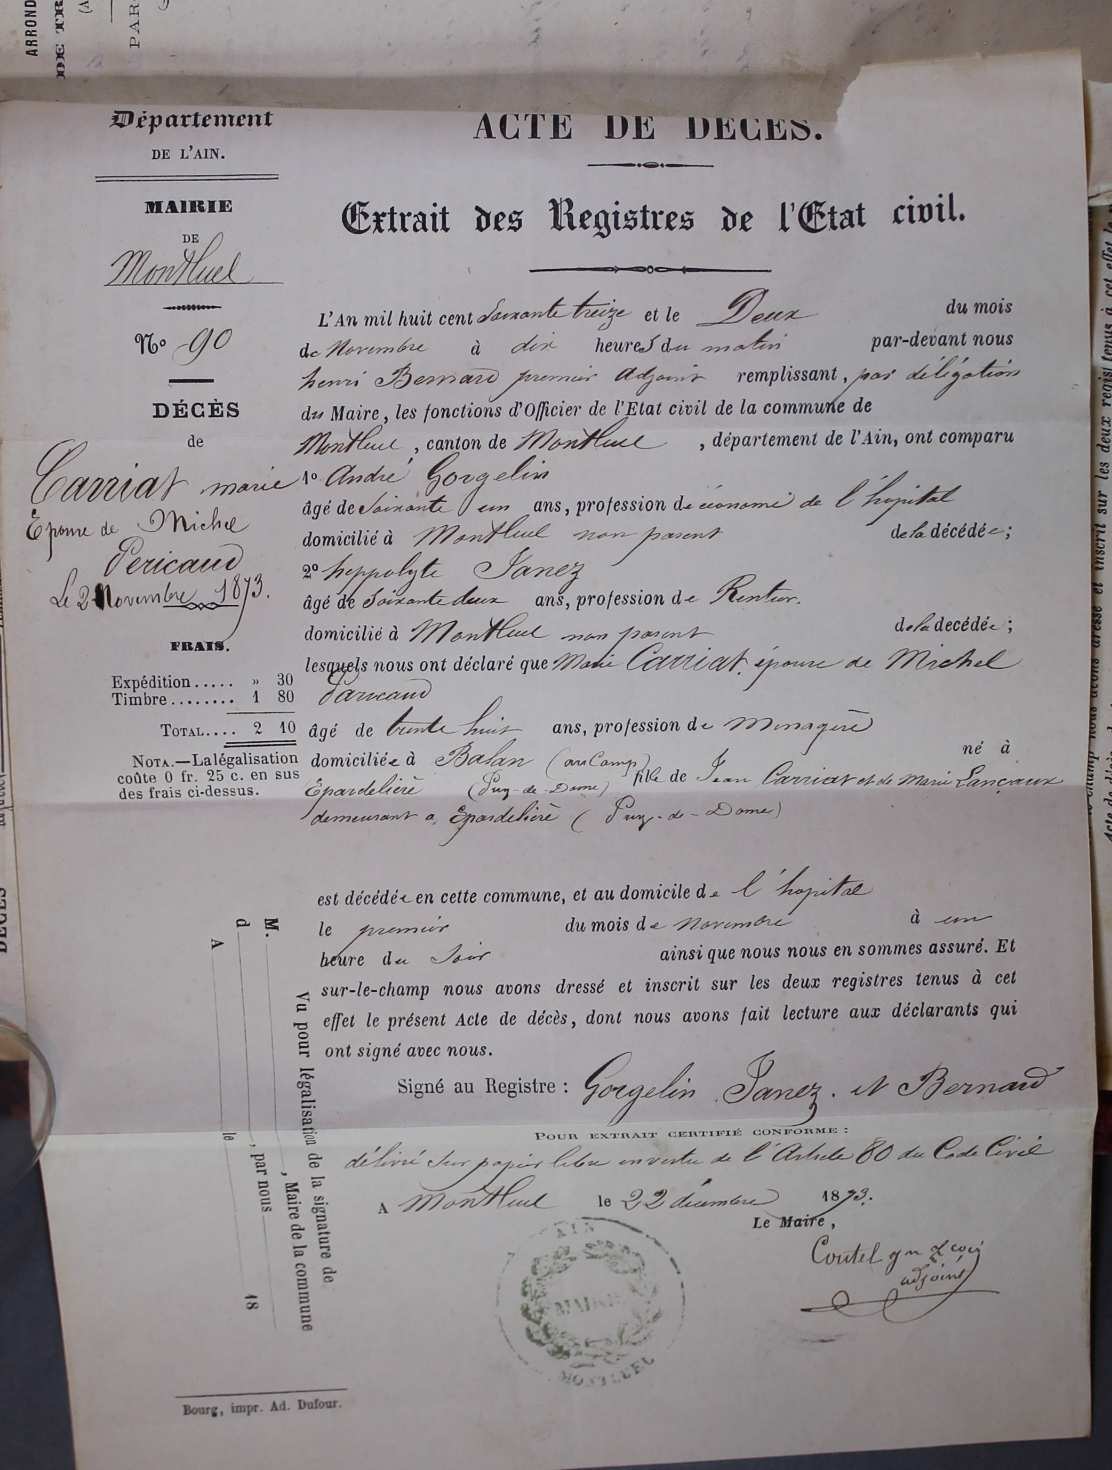 ARROND
DE TR
PARS
Département
DE L'AIN.
MAIRIE
DE
Montluel
No 90
DÉCÈS
de
Carriat marie
Epouse de Michel
Pericaud
Le 2 Novembre 1873.
FRAIS.
Expédition..... » 30
Timbre........ 1 80
TOTAL.... 2 10
NOTA.—La légalisation
coûte 0 fr. 25 c. en sus
des frais ci-dessus.
ACTE DE DÉCÈS.
Extrait des Registres de l'Etat civil.
L'An mil huit cent Soixante treize et le Deux du mois
de Novembre à dix heures du matin par-devant nous
henri Bernard premier Adjoint remplissant, par délégation
du Maire, les fonctions d'Officier de l'Etat civil de la commune de
Montluel, canton de Montluel, département de l'Ain, ont comparu
1o André Gorgelin
âgé de Soixante un ans, profession de économe de l'hopital
domicilié à Montluel non parent de la décédée;
2o hyppolyte Janez
âgé de Soixante deux ans, profession de Rentier.
domicilié à Montluel non parent de la décédée;
lesquels nous ont déclaré que Marie Carriat, épouse de Michel
Paricaud
âgé de trente huit ans, profession de Menagère
domiciliée à Balan (au Camp) né à
Epardelière (Puy-de-Dome) fille de Jean Carriat et de Marie Lançaux
demeurant a Epardelière (Puy-de-Dome)
est décédée en cette commune, et au domicile de l'hopital
le premier du mois de Novembre à un
heure du Soir ainsi que nous nous en sommes assuré. Et
sur-le-champ nous avons dressé et inscrit sur les deux registres tenus à cet
effet le présent Acte de décès, dont nous avons fait lecture aux déclarants qui
ont signé avec nous.
Signé au Registre : Gorgelin Janez. et Bernard
POUR EXTRAIT CERTIFIÉ CONFORME :
délivré sur papier libre en vertu de l'Article 80 du Code Civil
A Montluel le 22 décembre 1873.
Le Maire,
Coutel
adjoint
AIN
MAIRIE
MONTLUEL
Vu pour légalisation de la signature de
M. , Maire de la commune
d , par nous
A le 18
Bourg, impr. Ad. Dufour.
DÉCÈS